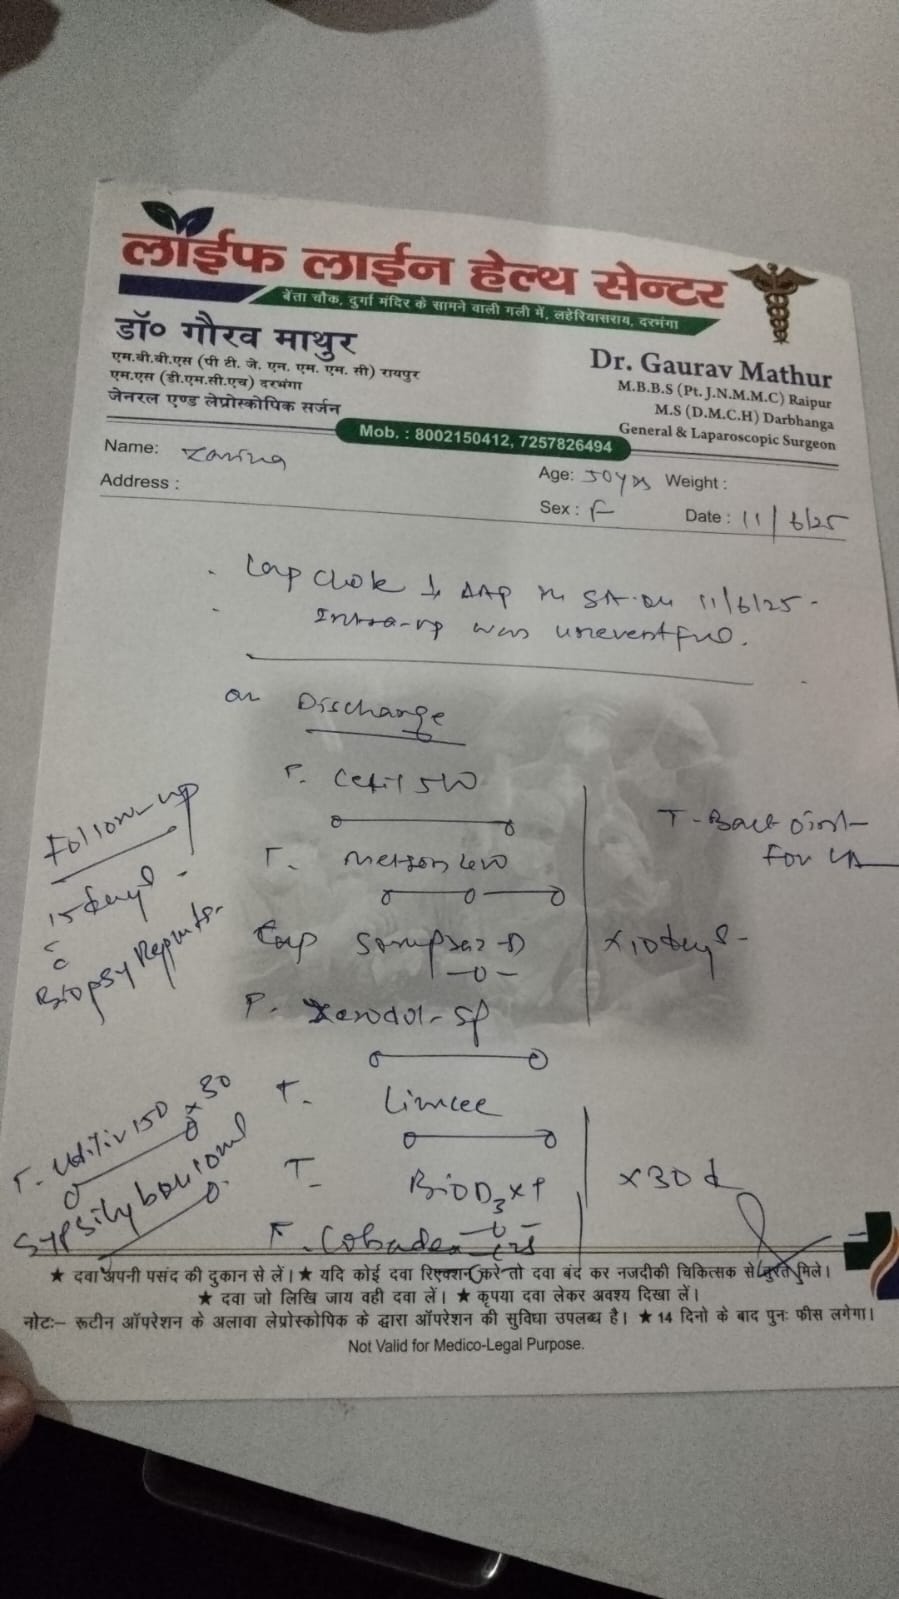 लाईफ लाईन हेल्थ सेन्टर
बेंता चौक, दुर्गा मंदिर के सामने वाली गली में, लहेरियासराय, दरभंगा
डॉ० गौरव माथुर
एम.बी.बी.एस (पी टी. जे. एन. एम. एम. सी) रायपुर
एम.एस (डी.एम.सी.एच) दरभंगा
जेनरल एण्ड लेप्रोस्कोपिक सर्जन
Dr. Gaurav Mathur
M.B.B.S (Pt. J.N.M.M.C) Raipur
M.S (D.M.C.H) Darbhanga
General & Laparoscopic Surgeon
Mob. : 8002150412, 7257826494
Name:
Age: 50yrs Weight :
Address :
Sex : F Date : 11/6/25
Lap Chole SA on 11/6/25
Intra-op was uneventful.
on Discharge
T. Ceftil 500
T. Metron 400
Cap
T. Zerodol-SP
x10days
Follow-up
15 days
Biopsy Reports
T. Limcee
T. BioD3
x30d
T. Udiliv 150 x30
★ दवा अपनी पसंद की दुकान से लें। ★ यदि कोई दवा रिएक्शन करे तो दवा बंद कर नजदीकी चिकित्सक से तुरंत मिले।
★ दवा जो लिखि जाय वही दवा लें। ★ कृपया दवा लेकर अवश्य दिखा लें।
नोटः– रूटीन ऑपरेशन के अलावा लेप्रोस्कोपिक के द्वारा ऑपरेशन की सुविधा उपलब्ध है। ★ 14 दिनो के बाद पुनः फीस लगेगा।
Not Valid for Medico-Legal Purpose.